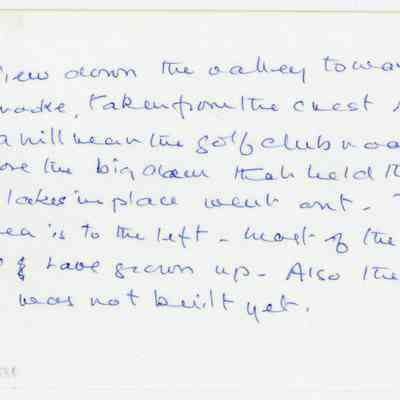 iew down the valley towa
taken from the crest
a hill near the golf club roa
ore the big dam that held t
lakes in place went out. T
ea is to the left - most of the
& have grown up - Also the
was not built yet.